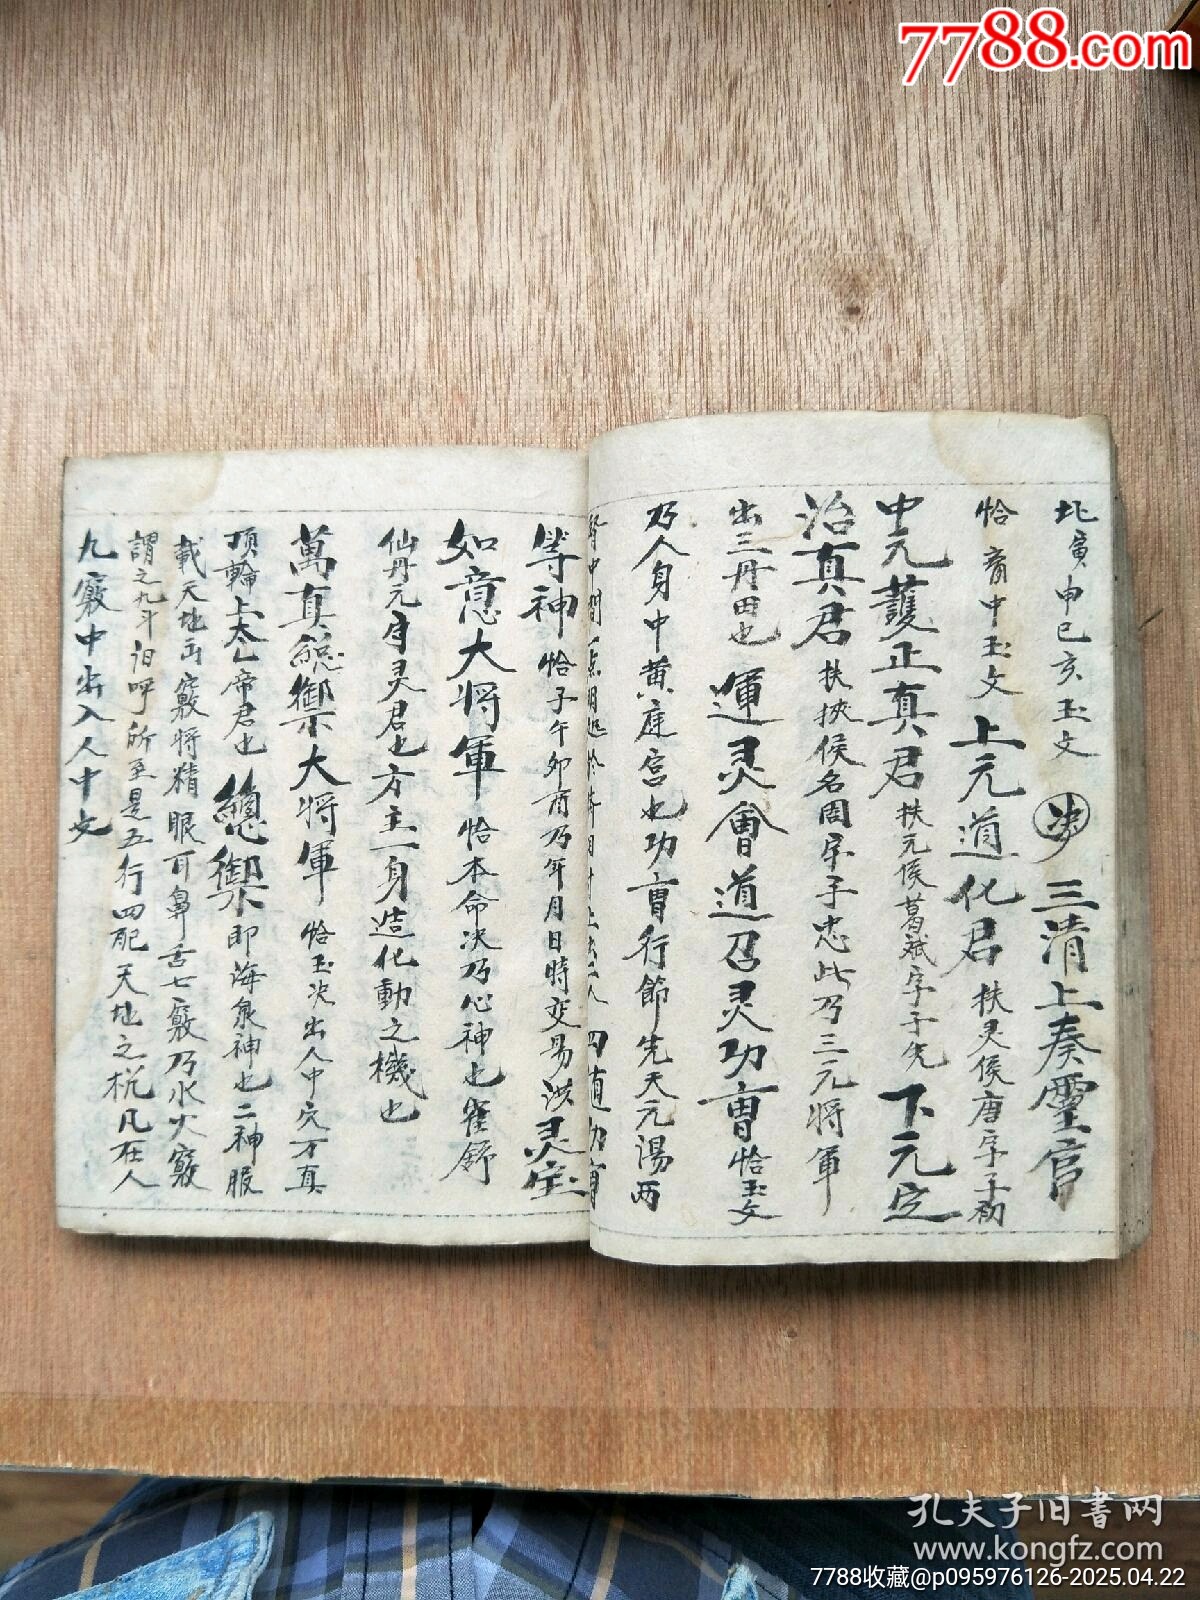 7788.com
玉文 决 三清上奏靈官
恰 中玉文 上元道化君 扶灵侯唐字子初
中元護正真君 扶元侯葛 字子先 下元定
治真君 扶 侯名周字子忠此乃三元将軍
出三丹田也 運灵會道召灵功曹 恰玉文
乃人身中黄庭宫也功曹行節先天元湯两
四直功曹
等神 恰子午卯酉乃年月日時变易 洪灵宝
如意大将軍 恰本命决乃心神也崔舒
仙丹元 灵君也方主一身造化動之機也
萬真総禦大将軍 恰玉决出人中穴万真
頂輪上太乙帝君也 總禦 即海泉神也二神服
載天地 竅将精 眼耳鼻舌七竅乃水火竅
謂之九斗 呼所至是五行四配天地之 凡在人
九竅中出入人中文
孔夫子旧书网
www.kongfz.com
7788收藏@p095976126-2025.04.22